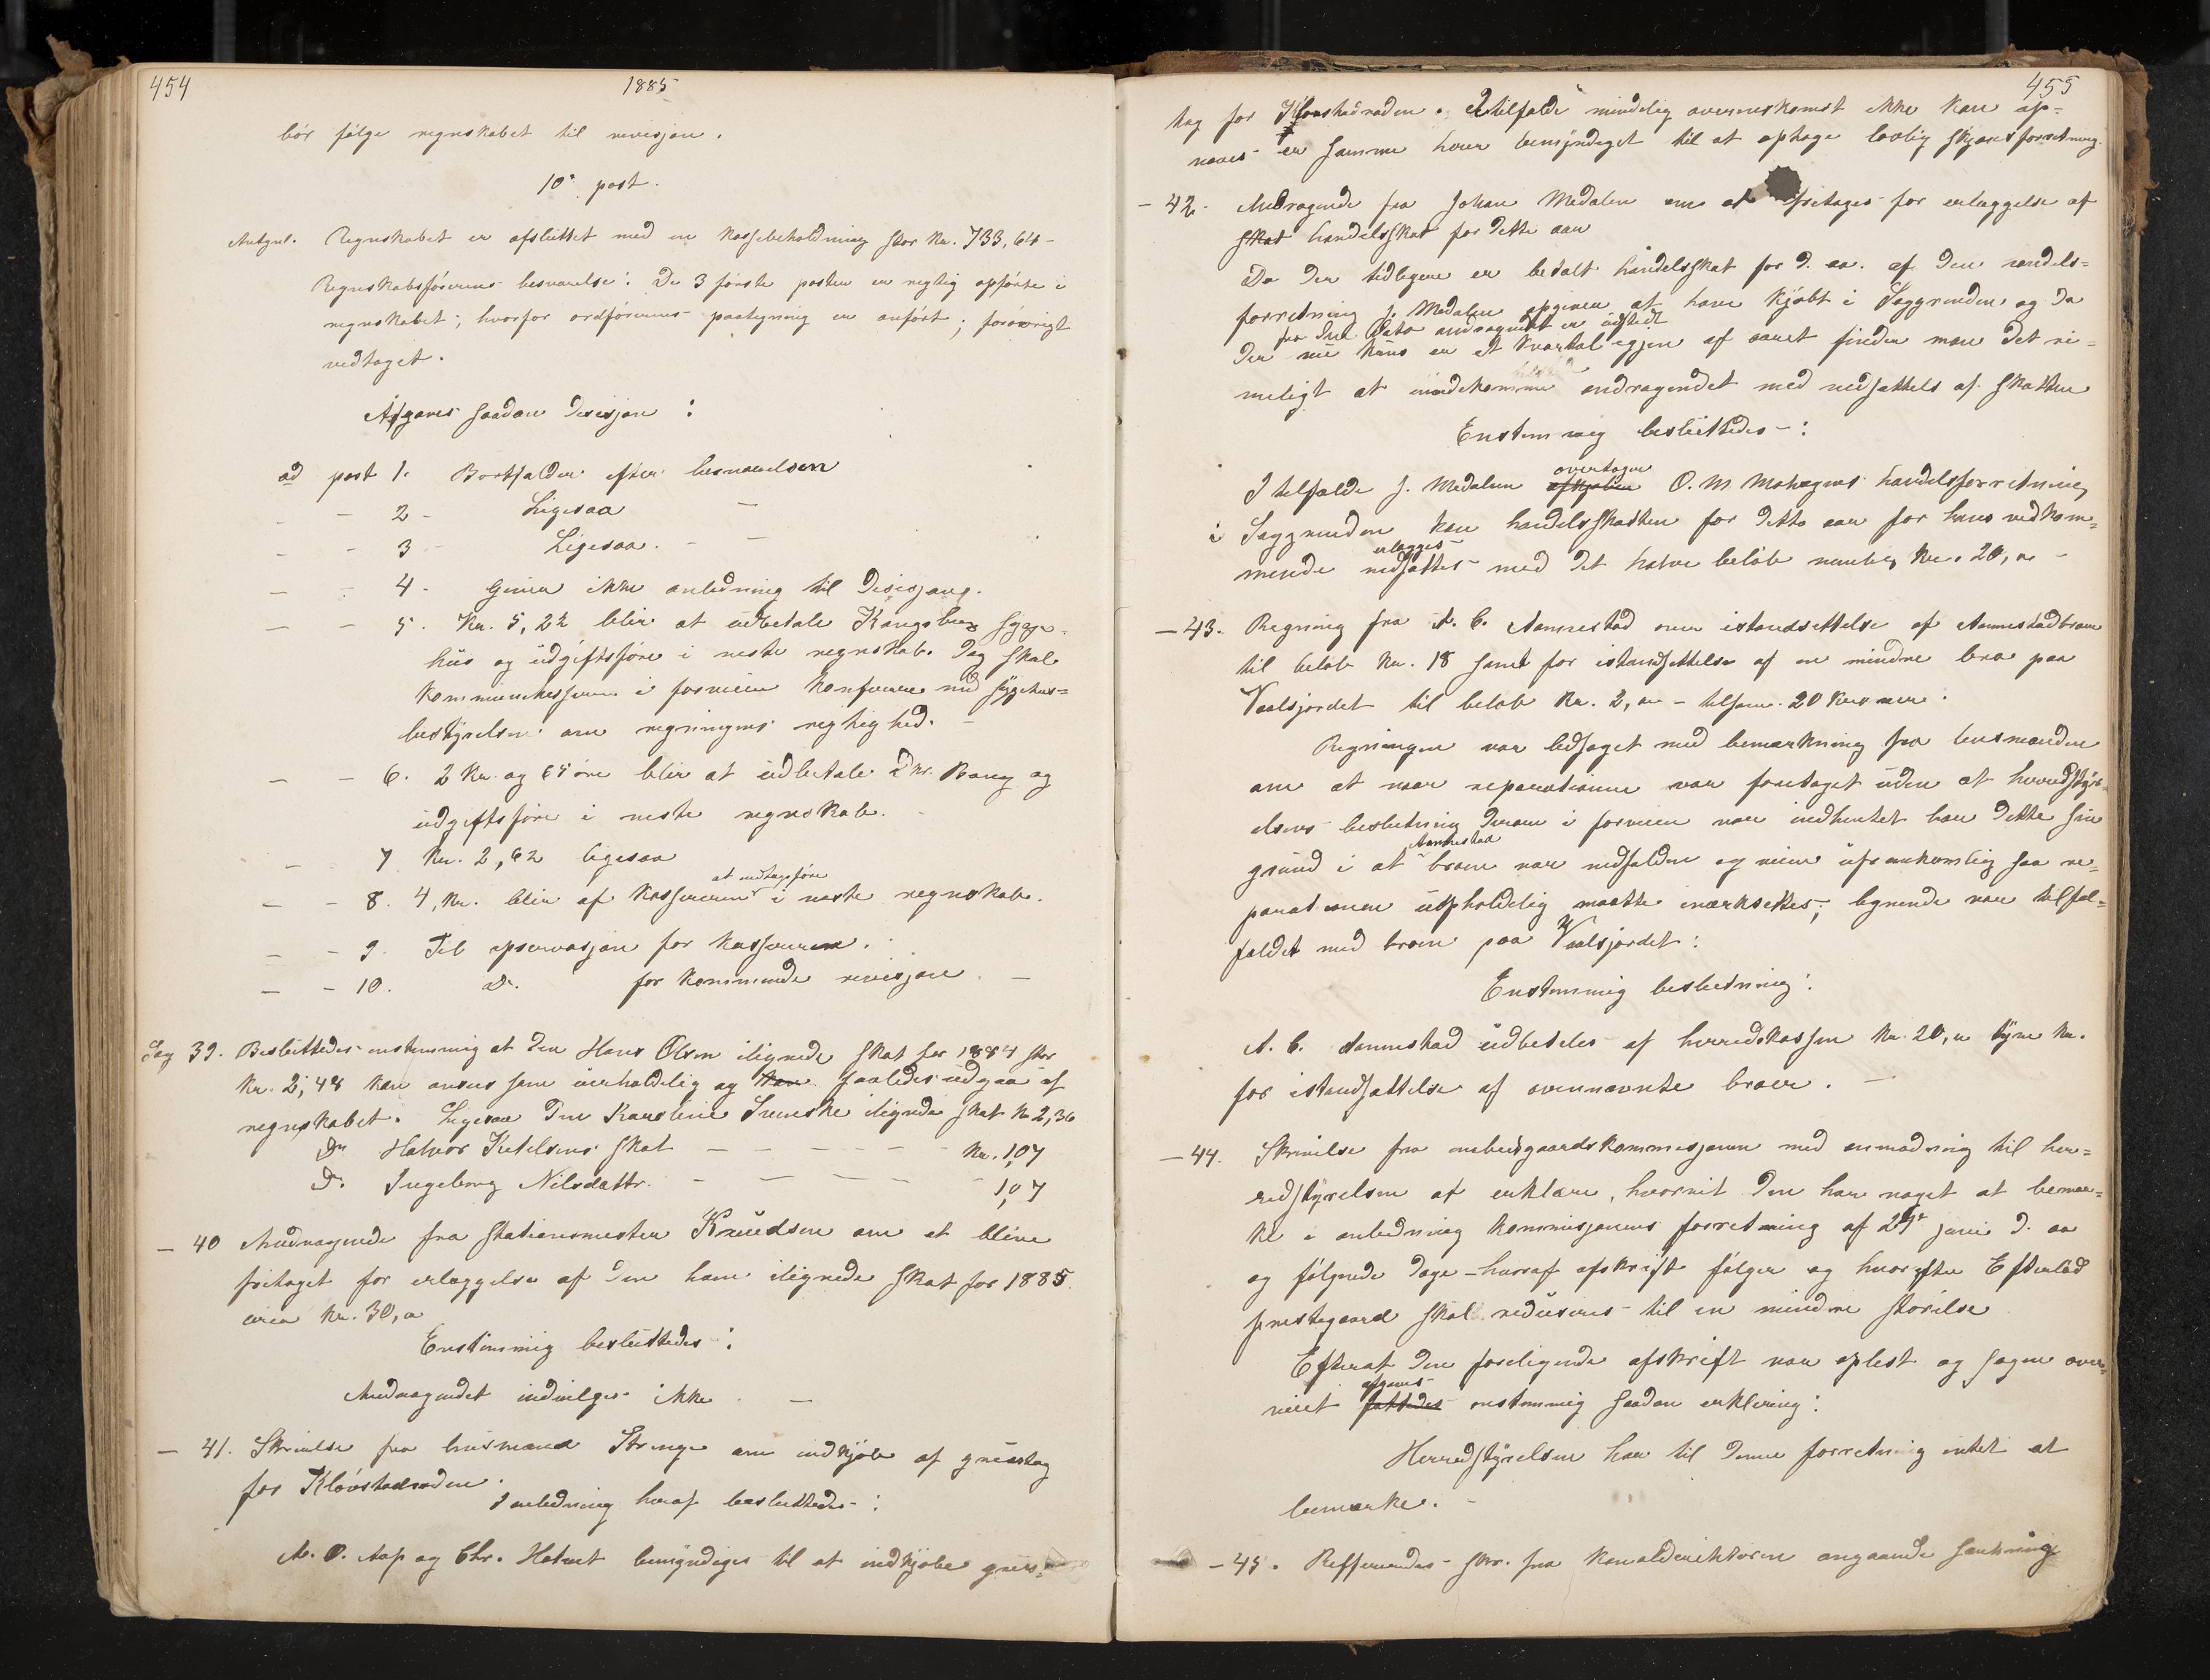 454
1885
bör følge regnskabet til revisjon.
10de post.
Antgnl. Regnskabet er afsluttet med en kassebeholdning stor Kr. 733,64 -
Regnskabsførerens besvarelse: De 3 første poster er regtig opførte i
regnskabet; hvorfor ordførerens paategning er anført; forøvrigt
vedtaget.
Afgaves saadan desisjon:
ad post 1. Bortfalder efter besvarelsen
— - 2 - Ligesaa —
— - 3 - Ligesaa. - —
— - 4 - Giver ikke anledning til desisjong.
— - 5. Kr. 5,22 blir at udbetale Kongsberg syge-
hus og udgiftsføre i neste regnskab. Dog skal
kommunekasseren i forveien konferere med sygehus=
bestyrelsen om regningens regtighed. -
— - 6. 2 Kr. og 65 øre blir at udbetale Dhr. Bang og
udgiftsføre i neste regnskab. -
— - 7 Kr. 2,62 ligesaa
at indtægsføre
— - 8. 4, Kr. blir af kassereren i neste regnskab.
— - 9. Til opservasjon for kassereren.
— - 10. Do. for kommende revisjon. —
Sag 39. Besluttedes enstemmig at den Hans Olsen ilignede skat for 1884 stor
Kr. 2,48 kan ansees som uerholdelig og kan saaledes udgaa af
regnskabet. Ligesaa den Karoline Svenske ilignede skat Kr 2,36
Do Halvor Ketilsens skat — — — — - Kr. 1,07
Do. Ingeborg Nilsdattr. - — — — - 1,07
— 40 Andragende fra stationsmester Knudsen om at blive
fritaget for erlæggelse af den ham ilignede skat for 1885.
circa Kr. 30,00
Enstemmig besluttedes:
Andragendet indvilges ikke. —
— 41. Skrivelse fra husmand Strenge om indkjøb af grustag
for Kløvstadroden.
I anledning heraf besluttedes:
A. O. Aas og Chr. Hotvet bemyndiges til at indkjøbe grus=
455
tag for Kløvstadroden. I tilfælde mindelig overenskomst ikke kan op=
naaes er samme herrer bemyndiget til at optage lovlig skjønsforretning.
- 42 - Andragende fra Johan Medalen om at fritages for erlæggelse af
skat handelsskat for dette aar
Da der tidligere er betalt handelsskat for d. aa. af den handels=
forretning J. Medalen opgiver at have kjøbt i Saggrenden og da
fra den dato andragendet er udstedt
der nu kuns er et kvartal igjen af aaret finder man det ri=
meligt at imødekomme andragendet med nedsættels af skatten
Enstemmig besluttedes:
overtager
I tilfælde J. Medalen afkjøber O. M Mohagens handelsforretning
i Saggrenden kan handelsskatten for dette aar for hans vedkom=
erlægges
mende nedsættes med det halve beløb nemlig Kr. 20,00 -
— 43. Regning fra A. C. Aannestad over istandsettelse af Aannestadbroen
til beløb Kr. 18 samt for istandsettelse af en mindre bro paa
Vaalsjordet til beløb Kr. 2,00 - tilsam. 20 kroner.
Regningen var ledsaget med bemærkning fra lensmanden
om at naar reparationen var foretaget uden at herredsstyr=
elsens beslutning derom i forveien var indhentet har dette sin
Aannestad
grund i at broen var nedfalden og veien ufremkomlig saa re=
parationen uopholdelig maatte iværksettes; lignende var tilfæl=
faldet med broen paa Vaalsjordet:
Enstemmig beslutning:
A. C. Aannestad udbetales af herredskassen Kr. 20,00 tyve Kr.
for istandsættelse af ovennævnte broer. —
— 44. Skrivelse fra embedsgaardskommisjonen med anmodning til her=
redsstyrelsen at erklære, hvorvit den har noget at bemær=
ke i anledning kommisjonens forretning af 29de juni d. aa
og følgende dage - hvoraf afskrift følger og hvorefter Efterløds
prestegaard skal reduseres til en mindre størrelse.
Efterat den foreligende afskrift var oplest og sagen over=
afgaves
veiet fattedes enstemmig saadan erklering:
Herredsstyrelsen har til denne forretning intet at
bemærke. -
- 45. Refferendes skr. fra kanaldirektøren angaaende sænkning